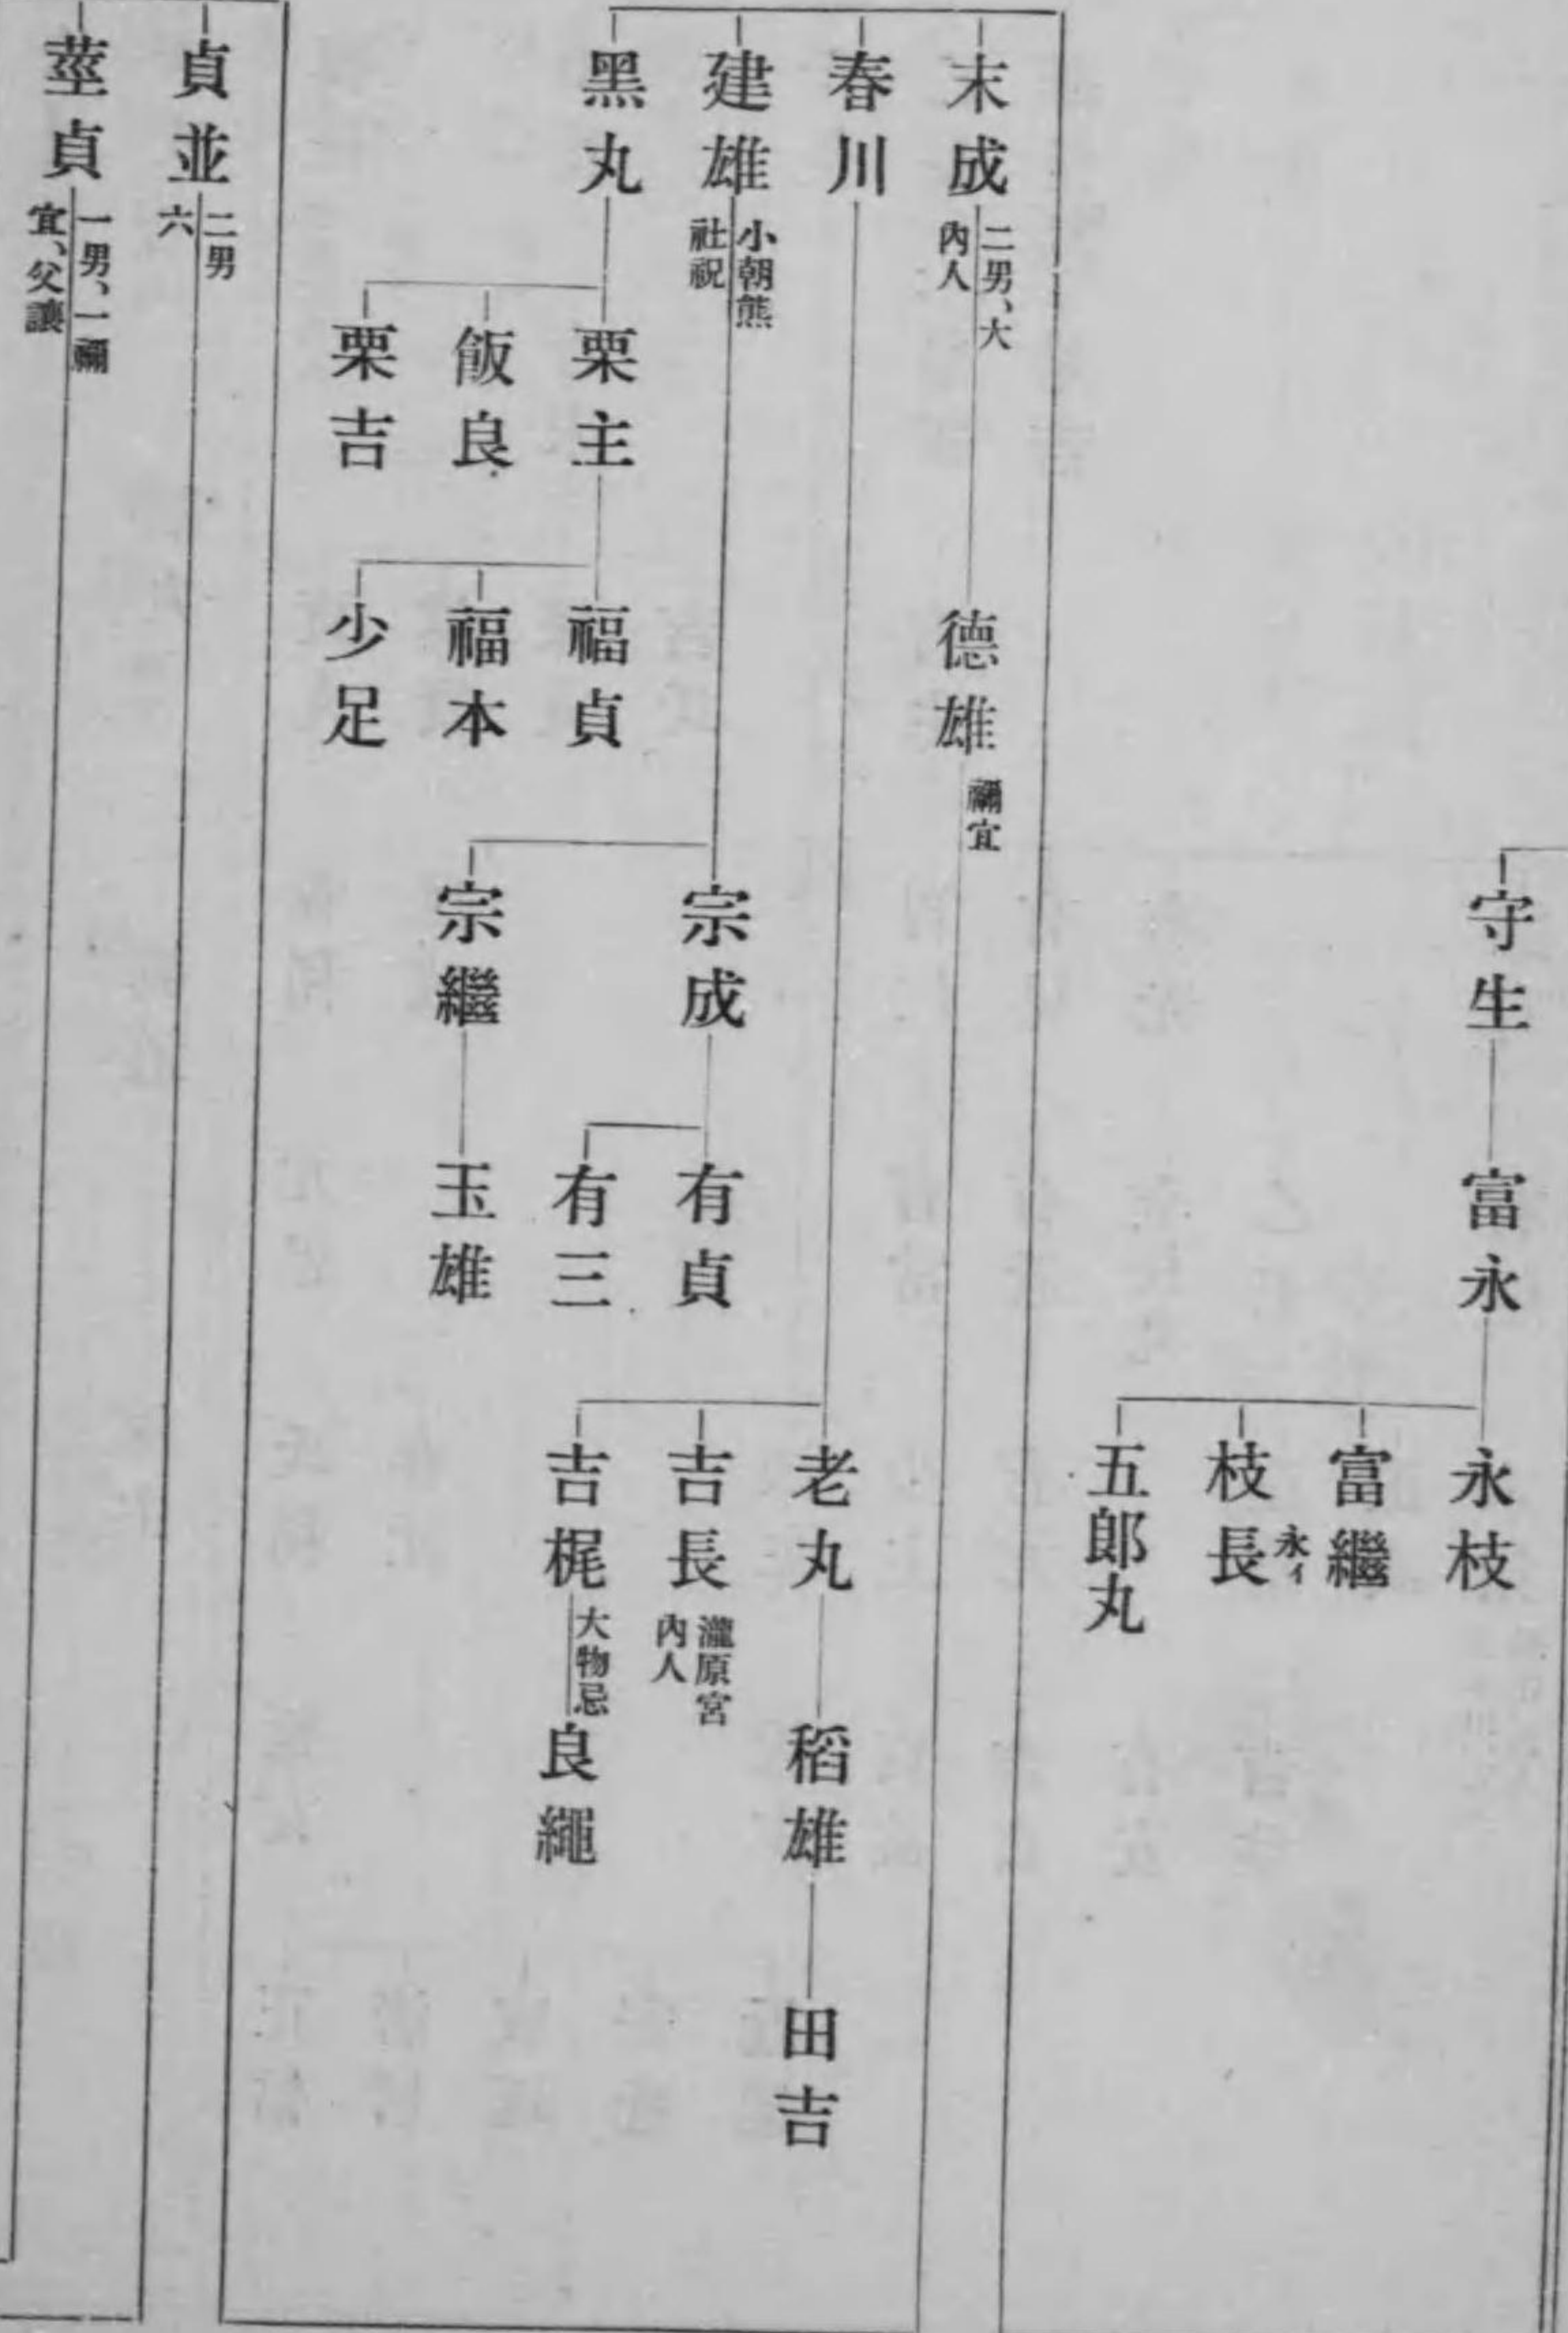 守生
富永
永枝
富繼
永イ
枝長
五郎丸
末成
二男、大
內人
德雄
禰宜
春川
老丸
稻雄
田吉
吉長
瀧原宮
內人
吉梶
大物忌
良繩
建雄
小朝熊
社祝
宗成
有貞
有三
宗繼
玉雄
黑丸
栗主
福貞
福本
少足
飯良
栗吉
貞並
二男
六
莖貞
一男、一禰
宜、父讓